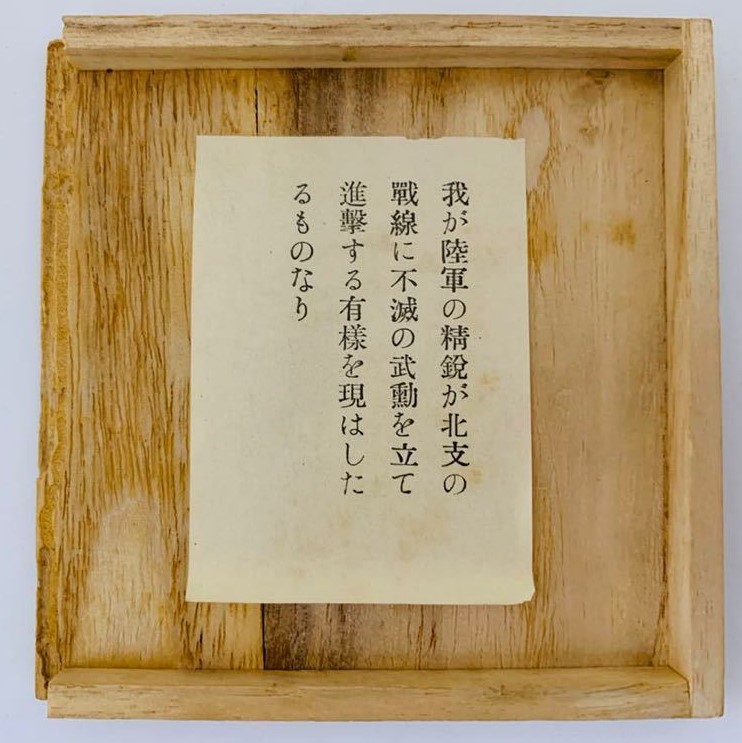 我が陸軍の精銳が北支の
戰線に不滅の武勳を立て
進擊する有樣を現はした
るものなり